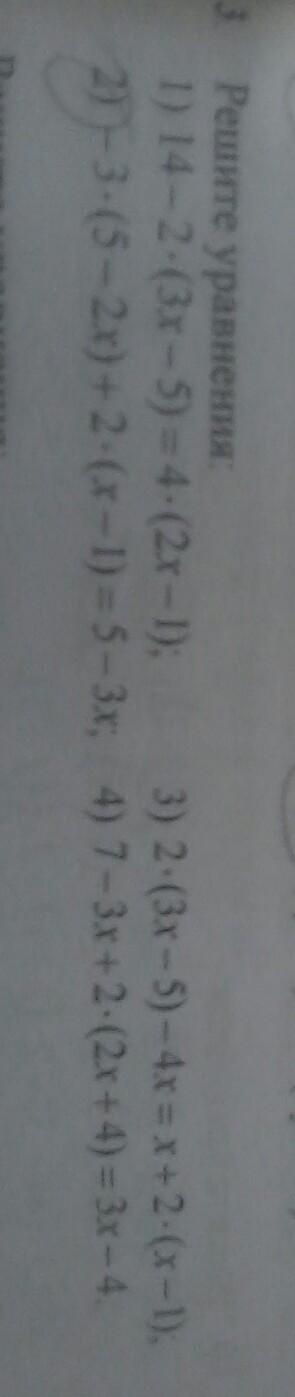 3 Решите уравнения:
1) 14 – 2·(3x – 5) = 4·(2x – 1); 3) 2·(3x – 5) – 4x = x + 2·(x – 1);
2) – 3·(5 – 2x) + 2·(x – 1) = 5 – 3x; 4) 7 – 3x + 2·(2x + 4) = 3x – 4.